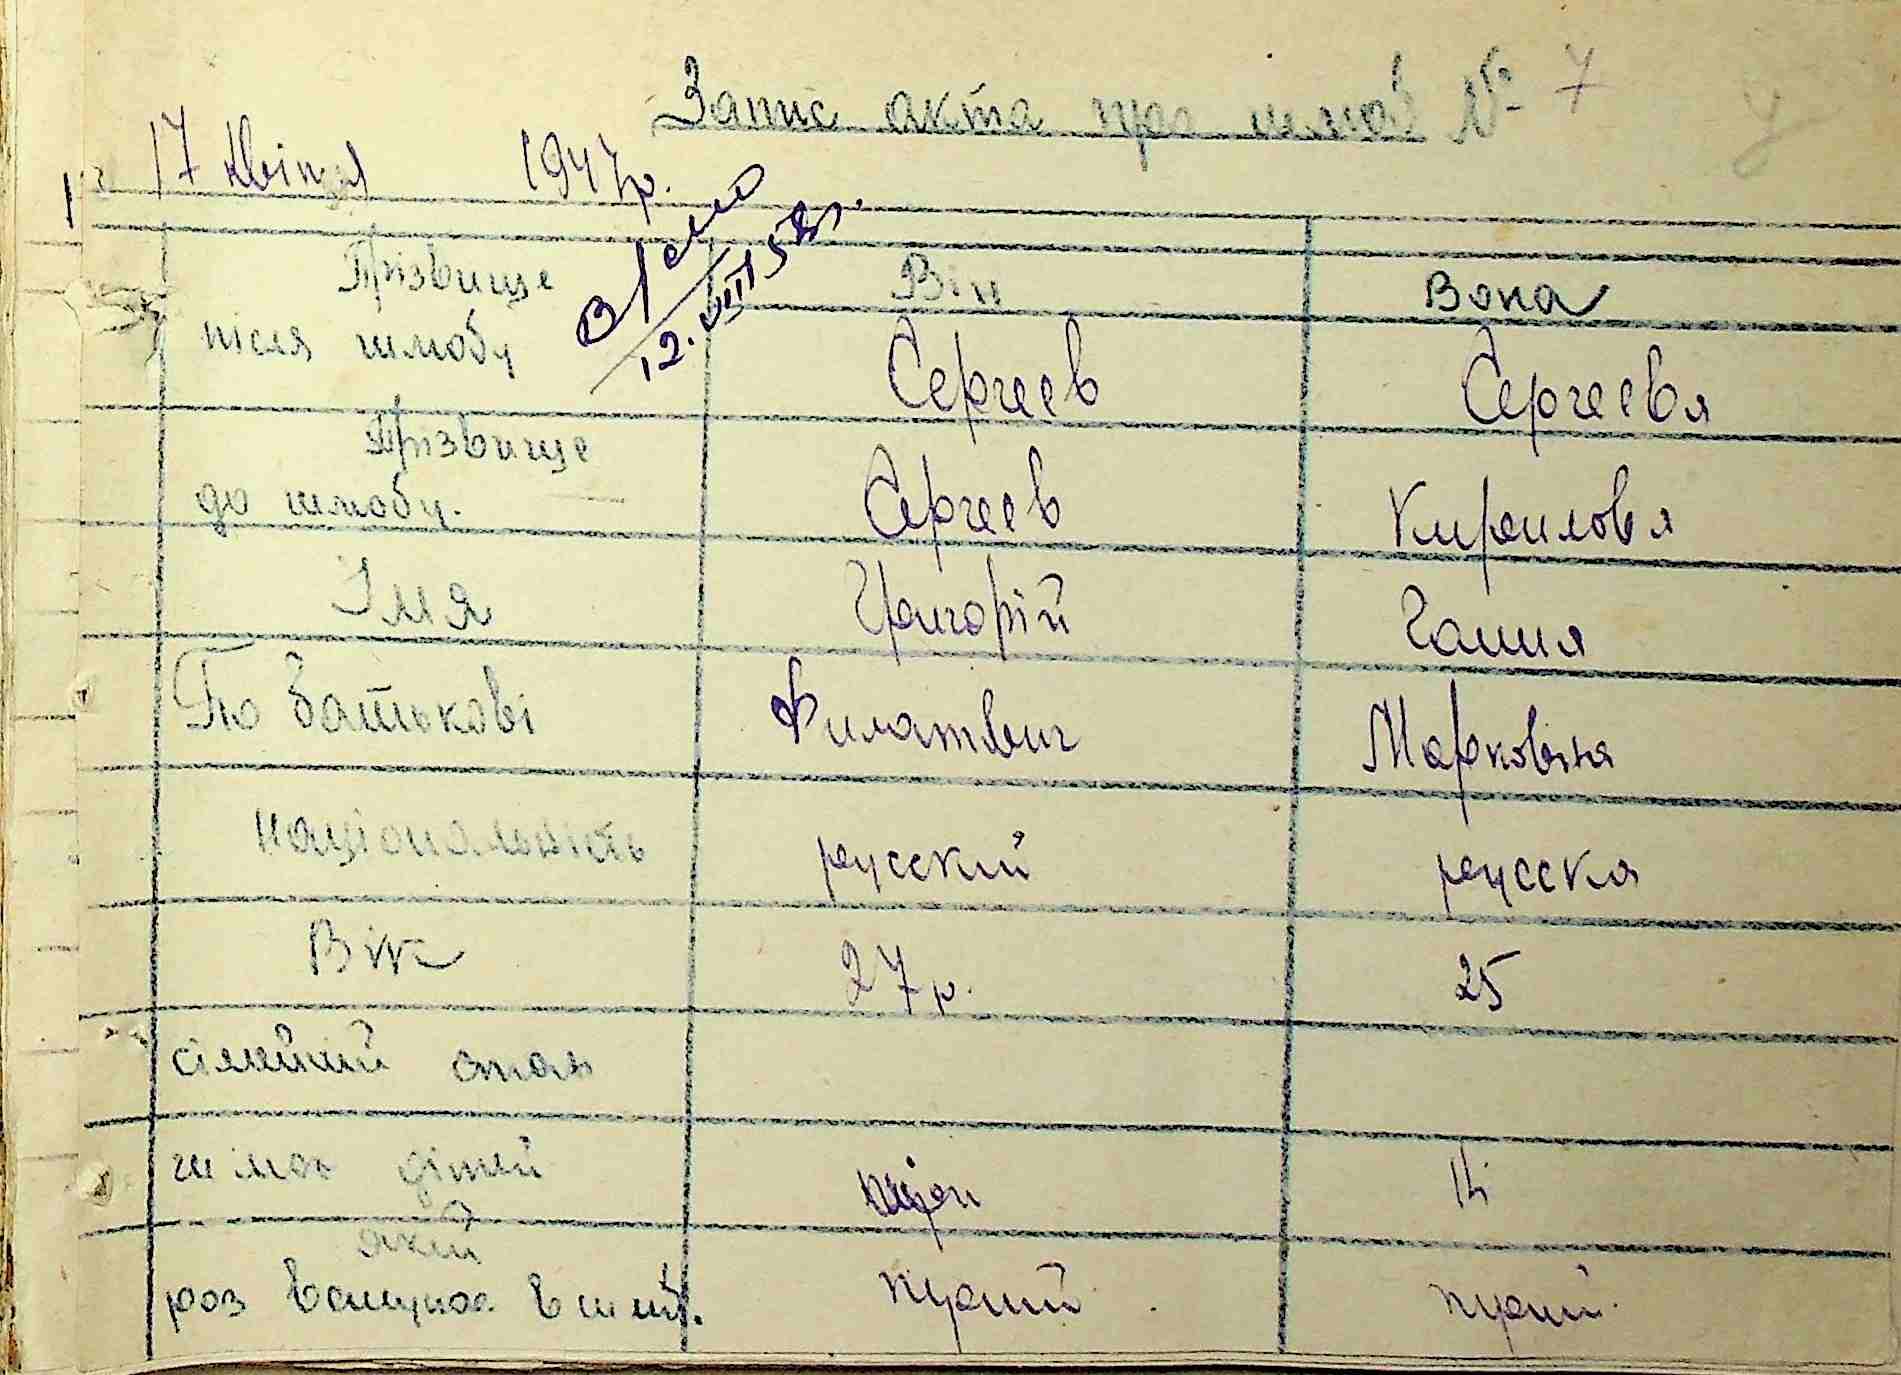 Запис акта про шлюб № 7
17 квітня 1947р.
12.VIII 58г.
Прізвище Він Вона
після шлюбу Сергеев Сергеева
Прізвище
до шлюбу. Сергеев Кирилова
Імя Григорій Ганна
По батькові Филатвич Марковна
Національність русский русска
Вік 27 р. 25
сімейний стан
дітей
який
раз вступає в шл. перший перший